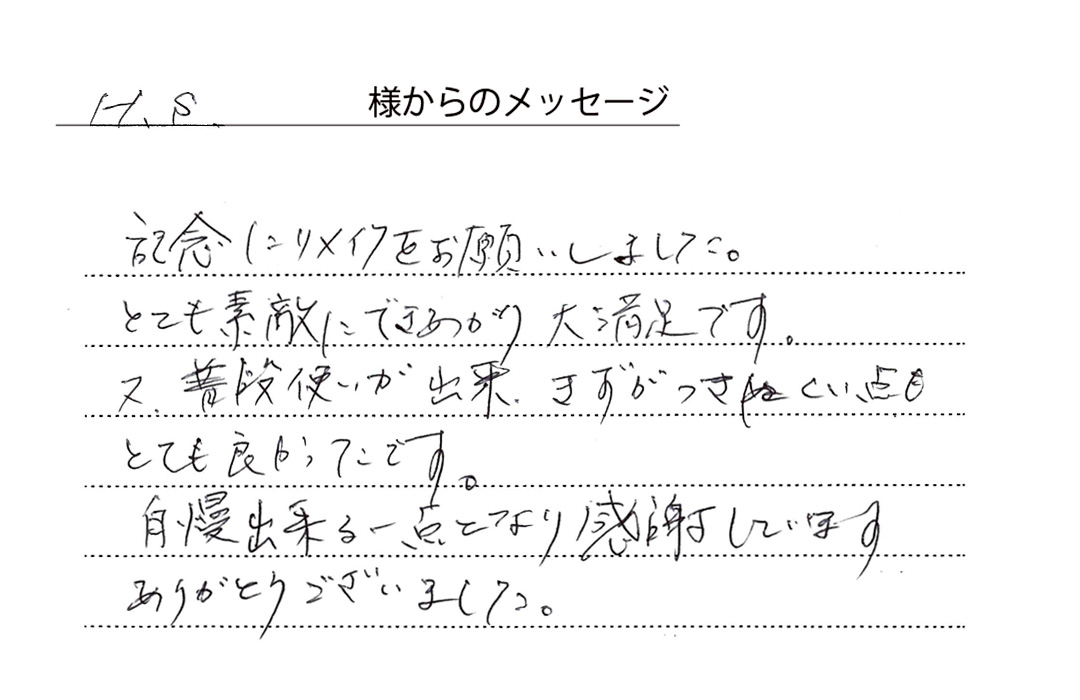 H.S. 様からのメッセージ
記念にリメイクをお願いしました。
とても素敵にできあがり大満足です。
又、普段使いが出来、きずがつきにくい点も
とても良かったです。
自慢出来る一点となり感謝しています
ありがとうございました。